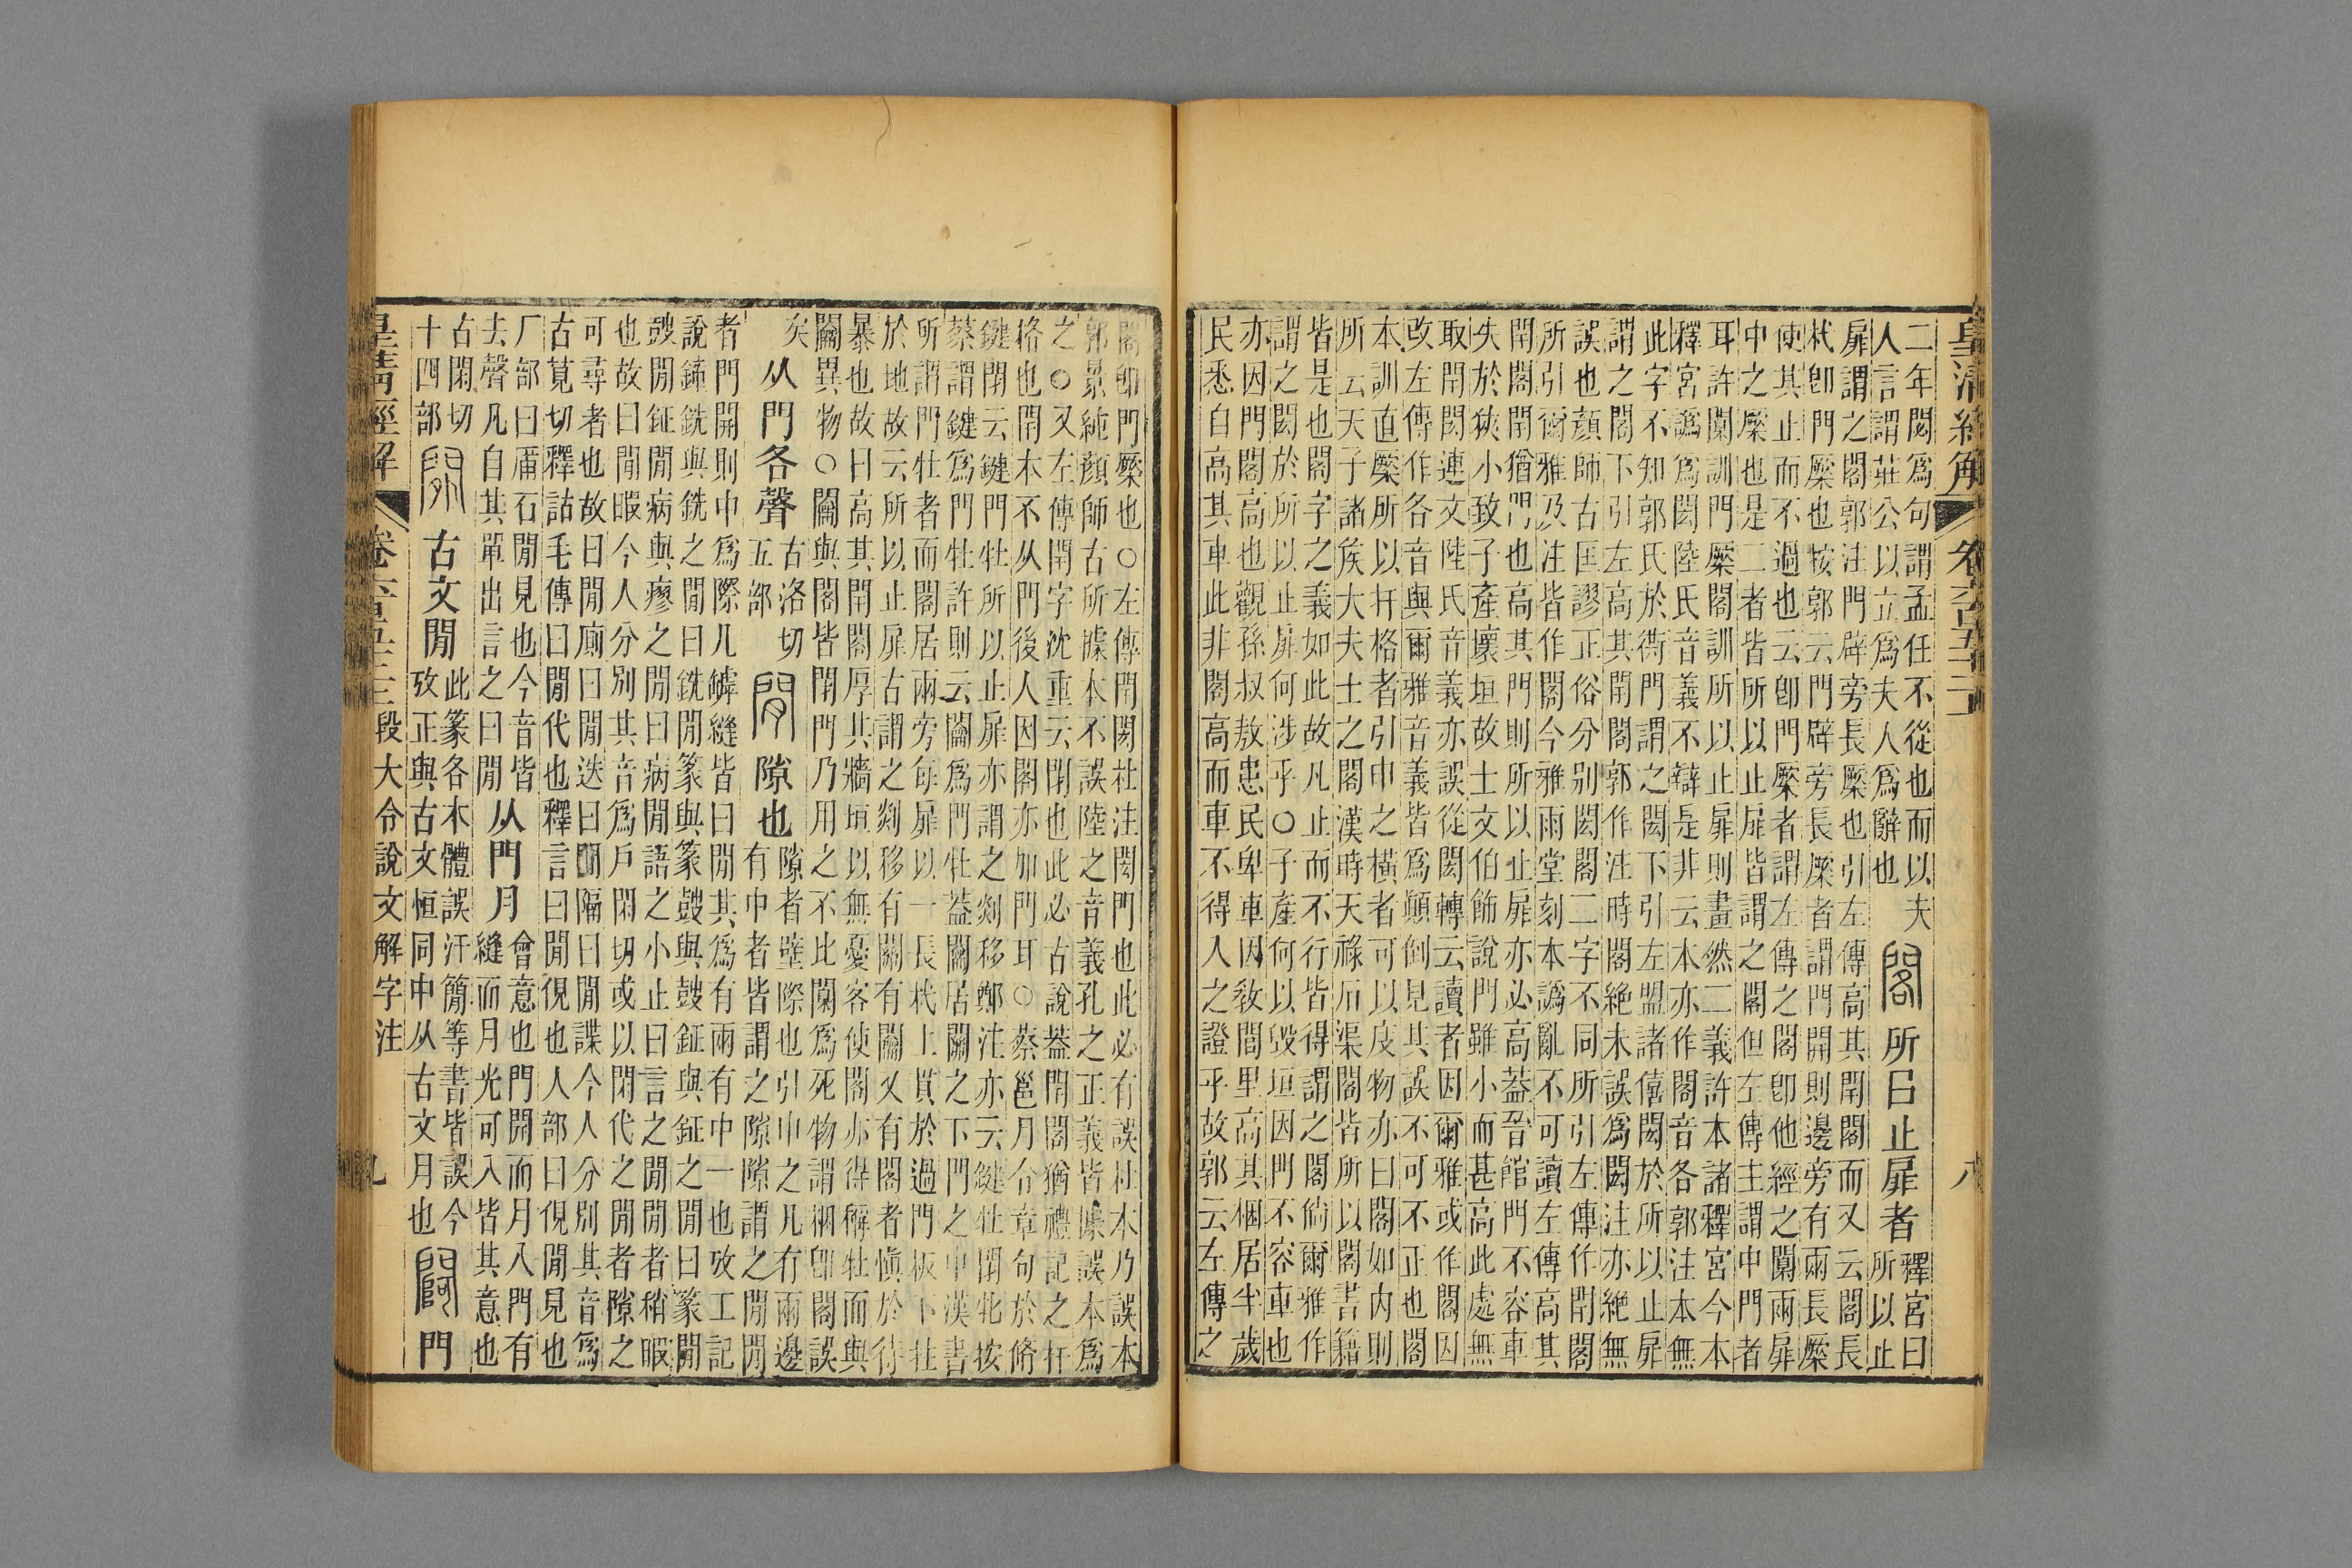 皇淸經解 卷六百五十三 八
二年閔爲句謂孟任不從也而以夫
人言謂莊公以立爲夫人爲辭也
閣所㠯止扉者
釋宮曰
所以止
扉謂之閣郭注門辟旁長橜也引左傳高其閈閣而又云閣長
杙卽門橜也按郭云門辟旁長橜者謂門開則邊旁有兩長橜
使其止而不過也云卽門橜者謂左傳之閣卽他經之闑兩扉
中之橜也是二者皆所以止扉皆謂之閣但左傳主謂中門者
耳許闑訓門橜閣訓所以止扉則畫然二義許本諸釋宮今本
釋宮譌爲閎陸氏音義不辯是非云本亦作閣音各郭注本無
此字不知郭氏於衖門謂之閎下引左盟諸僖閎於所以止扉
謂之閣下引左高其閈閣郭作注時閣絕未誤爲閎注亦絕無
誤也顏師古匡謬正俗分別閎閣二字不同所引左傳作閈閣
所引爾雅及注皆作閣今雅雨堂刻本譌亂不可讀左傳高其
閈閣閈猶閘也高其門則所以止扉亦必高葢晉館門不容車
失於狹小致子產壞垣故士文伯飾說門雖小而甚高此處無
取閈閎連文陸氏音義亦誤從閎轉云讀者因爾雅或作閣因
改左傳作各音與爾雅音義皆爲顚倒見其誤不可不正也閣
本訓直橜所以扞格者引申之橫者可以庋物亦曰閣如内則
所云天子諸矦大夫士之閣漢時天祿石渠閣皆所以閣書籍
皆是也閣字之義如此故凡止而不行皆得謂之閣倘爾雅作
謂之閎於所以止扉何涉乎○子產何以毀垣因門不容車也
亦因門閣高也觀孫叔敖患民卑車因敎閭里高其梱居半歲
民悉自高其車此非閣高而車不得人之證乎故郭云左傳之
閣卽門橜也○左傳閈閎杜注閎門也此必有誤杜本乃誤本
郭景純顏師古所據本不誤陸之音義孔之正義皆據誤本爲
之○又左傳閈字沈重云閉也此必古說葢閈閣猶禮記之扞
格也閈本不从門後人因閣亦加門耳○蔡邕月令章句於脩
鍵閉云鍵門牡所以止扉亦謂之剡移鄭注亦云鍵牡閉牝按
蔡謂鍵爲門牡許則云𨷲爲門牡葢𨷲居關之下門之中漢書
所謂門牡者而閣居兩旁每扉以一長杙上貫於過門板下牡
於地故云所以止扉古謂之剡移有關有𨷲又有閣者愼於待
暴也故曰高其閈閣厚其牆垣以無憂客使閣亦得稱牡而與
𨷲異物○𨷲與閣皆閉門乃用之不比闑爲死物謂梱卽閣誤
矣
从門各聲
古洛切
五部
閒隙也
隙者壁際也引申之凡有兩邊
有中者皆謂之隙隙謂之閒閒
者門開則中爲際凡罅縫皆曰閒其爲有兩有中一也攷工記
說鍾銑與銑之閒曰銑閒篆與篆鼓與鼓鉦與鉦之閒曰篆閒
鼓閒鉦閒病與瘳之閒曰病閒語之小止曰言之閒閒者稍暇
也故曰閒暇今人分別其音爲戶閑切或以閑代之閒者隙之
可尋者也故曰閒廁曰閒迭曰閒隔曰閒諜今人分別其音爲
古莧切釋詁毛傳曰閒代也釋言曰閒俔也人部曰俔閒見也
厂部曰𠪚石閒見也今音皆
去聲凡自其單出言之曰閒
从門月
會意也門開而月入門有
縫而月光可入皆其意也
古閑切
十四部
𨳢古文閒
此篆各本體誤汗簡等書皆誤今
攷正與古文恒同中从古文月也
閜門
皇淸經解 卷六百五十三 段大令說文解字注 九